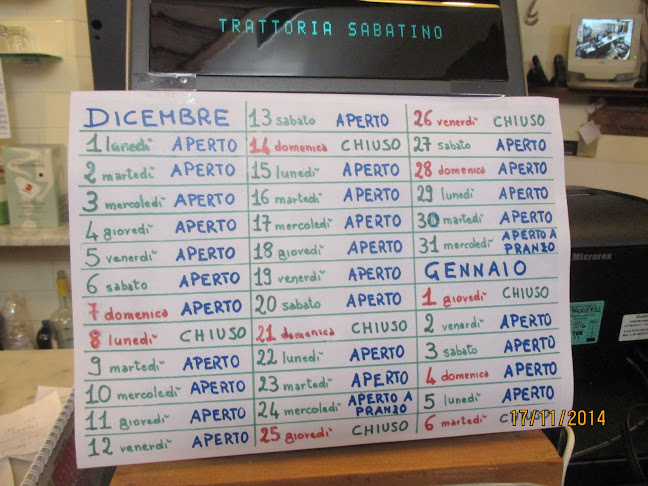 TRATTORIA SABATINO
DICEMBRE
1 lunedì APERTO
2 martedì APERTO
3 mercoledì APERTO
4 giovedì APERTO
5 venerdì APERTO
6 sabato APERTO
7 domenica APERTO
8 lunedì CHIUSO
9 martedì APERTO
10 mercoledì APERTO
11 giovedì APERTO
12 venerdì APERTO
13 sabato APERTO
14 domenica CHIUSO
15 lunedì APERTO
16 martedì APERTO
17 mercoledì APERTO
18 giovedì APERTO
19 venerdì APERTO
20 sabato APERTO
21 domenica CHIUSO
22 lunedì APERTO
23 martedì APERTO
24 mercoledì APERTO A
PRANZO
25 giovedì CHIUSO
26 venerdì CHIUSO
27 sabato APERTO
28 domenica APERTO
29 lunedì APERTO
30 martedì APERTO
31 mercoledì APERTO A
PRANZO
GENNAIO
1 giovedì CHIUSO
2 venerdì APERTO
3 sabato APERTO
4 domenica APERTO
5 lunedì APERTO
6 martedì
Microrex
17/11/2014